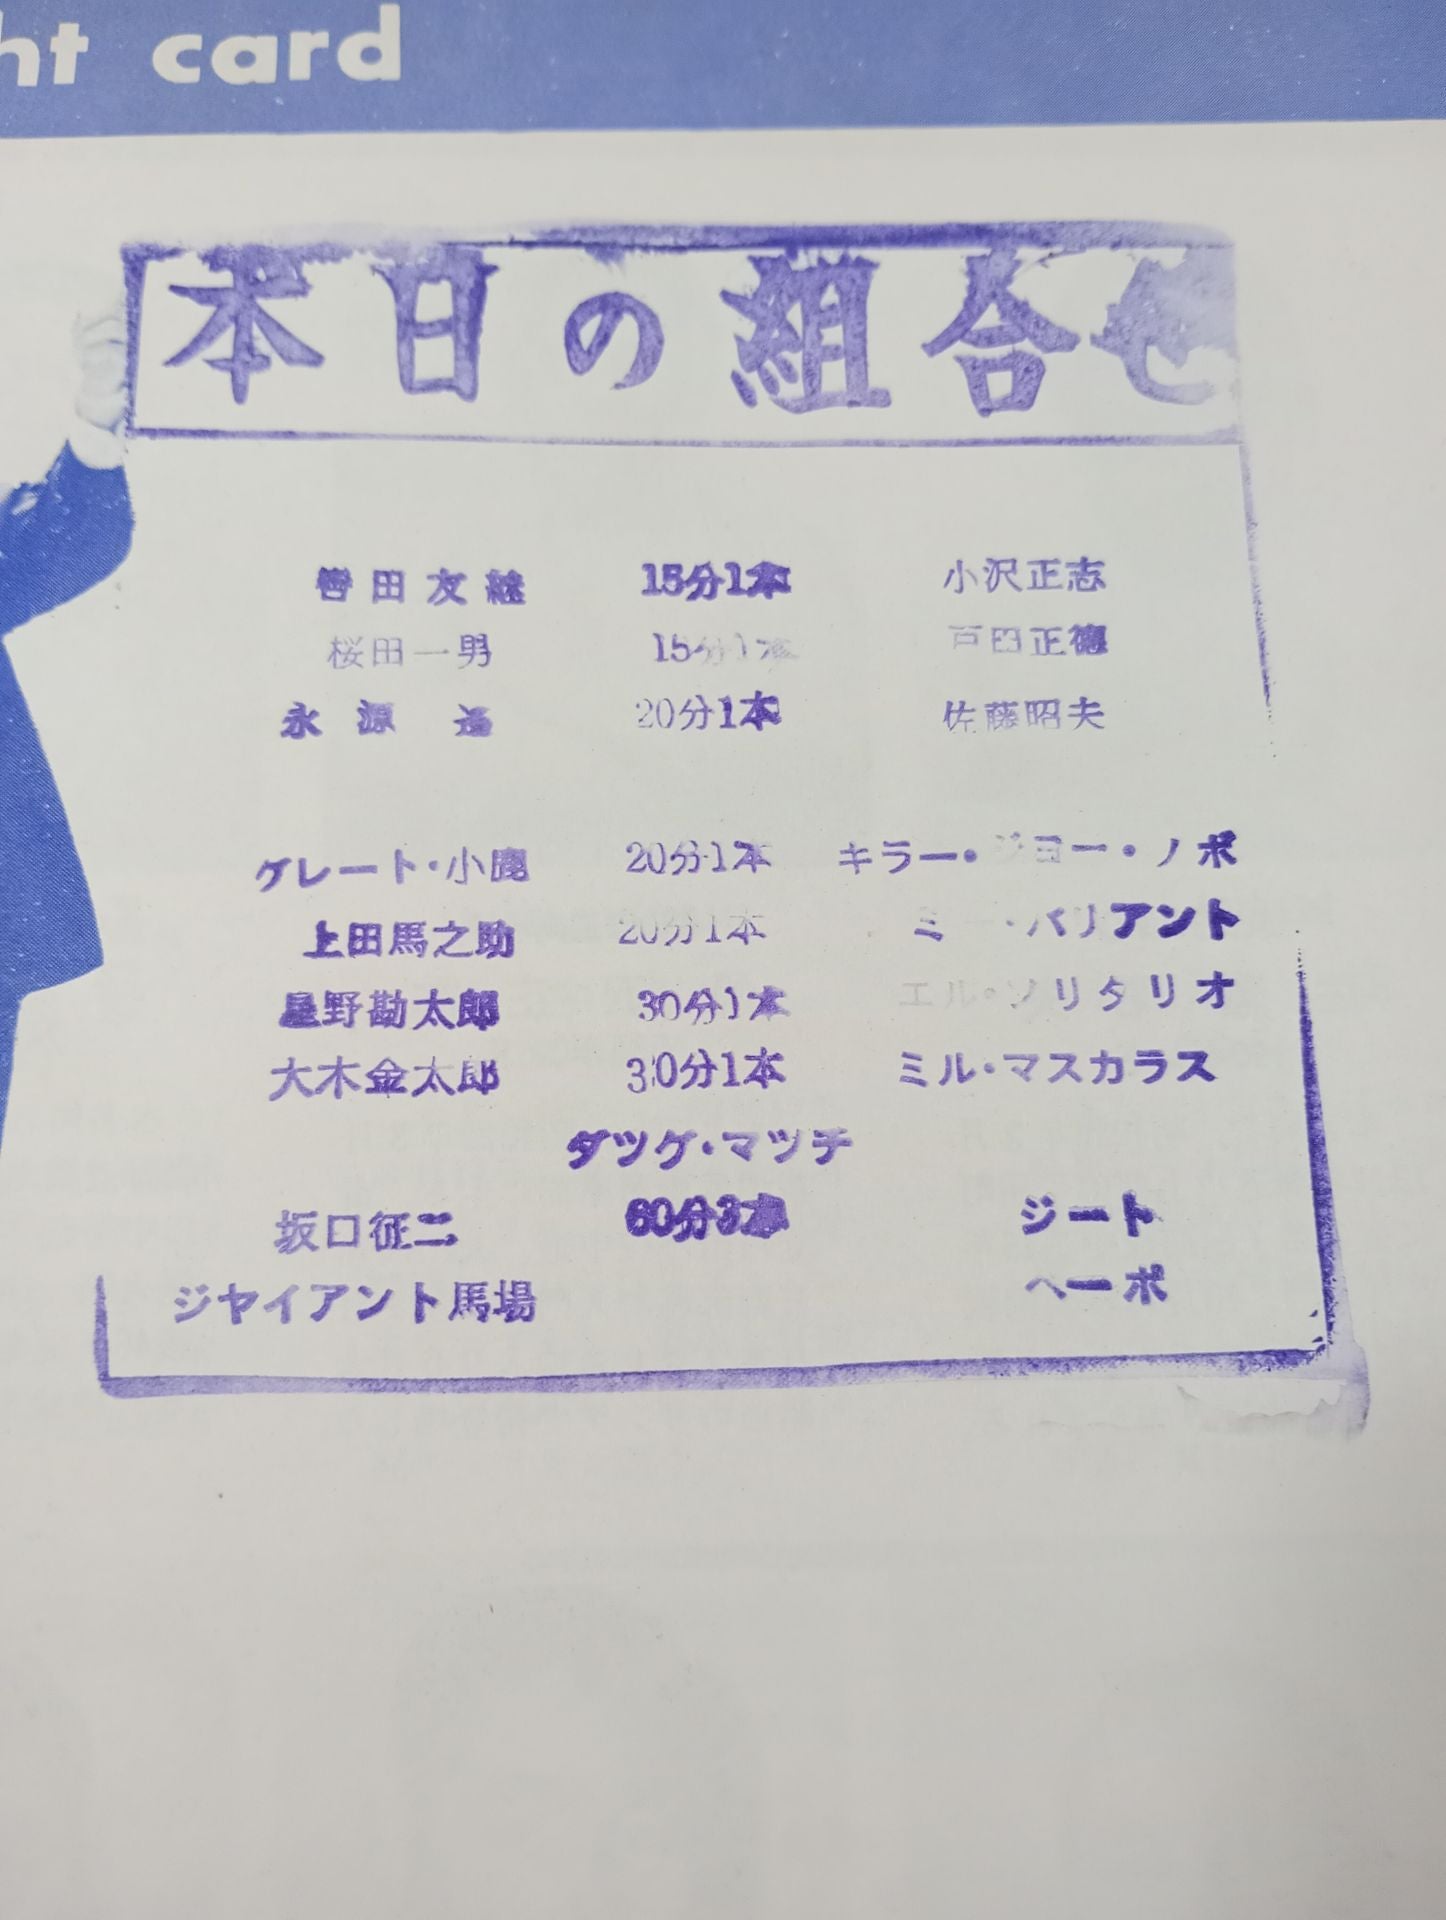 ht card
本日の組合せ
轡田友継 15分1本 小沢正志
桜田一男 15分1本 戸田正徳
永源遙 20分1本 佐藤昭夫
グレート・小鹿 20分1本 キラー・ジヨー・ノボ
上田馬之助 20分1本 ミー・バリアント
星野勘太郎 30分1本 エル・ソリタリオ
大木金太郎 30分1本 ミル・マスカラス
タツグ・マツチ
坂口征二 60分3本 ジート
ジヤイアント馬場 ヘーボ